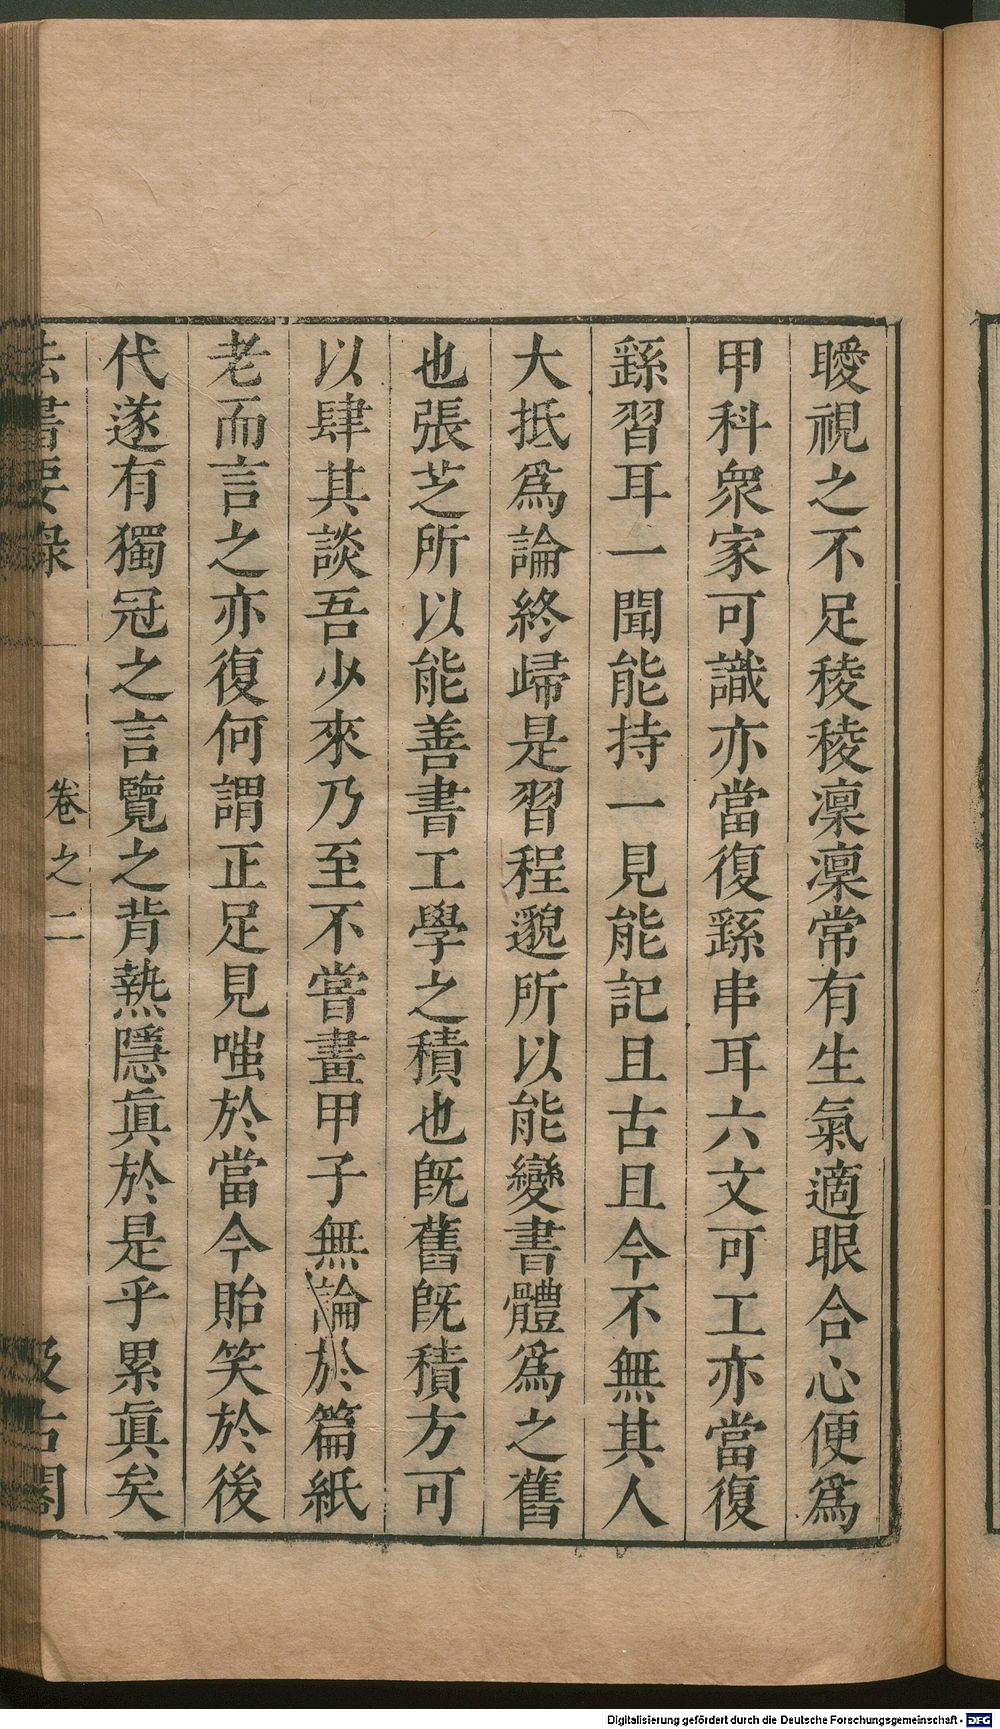 曖視之不足稜稜凜凜常有生氣適眼合心便爲
甲科衆家可識亦當復繇串耳六文可工亦當復
繇習耳一聞能持一見能記且古且今不無其人
大抵爲論終歸是習程邈所以能變書體爲之舊
也張芝所以能善書工學之積也旣舊旣積方可
以肆其談吾少來乃至不嘗畫甲子無論於篇紙
老而言之亦復何謂正足見嗤於當今貽笑於後
代遂有獨冠之言覽之背熱隱眞於是乎累眞矣
法書要錄 卷之二 汲古閣
Digitalisierung gefördert durch die Deutsche Forschungsgemeinschaft - DFG